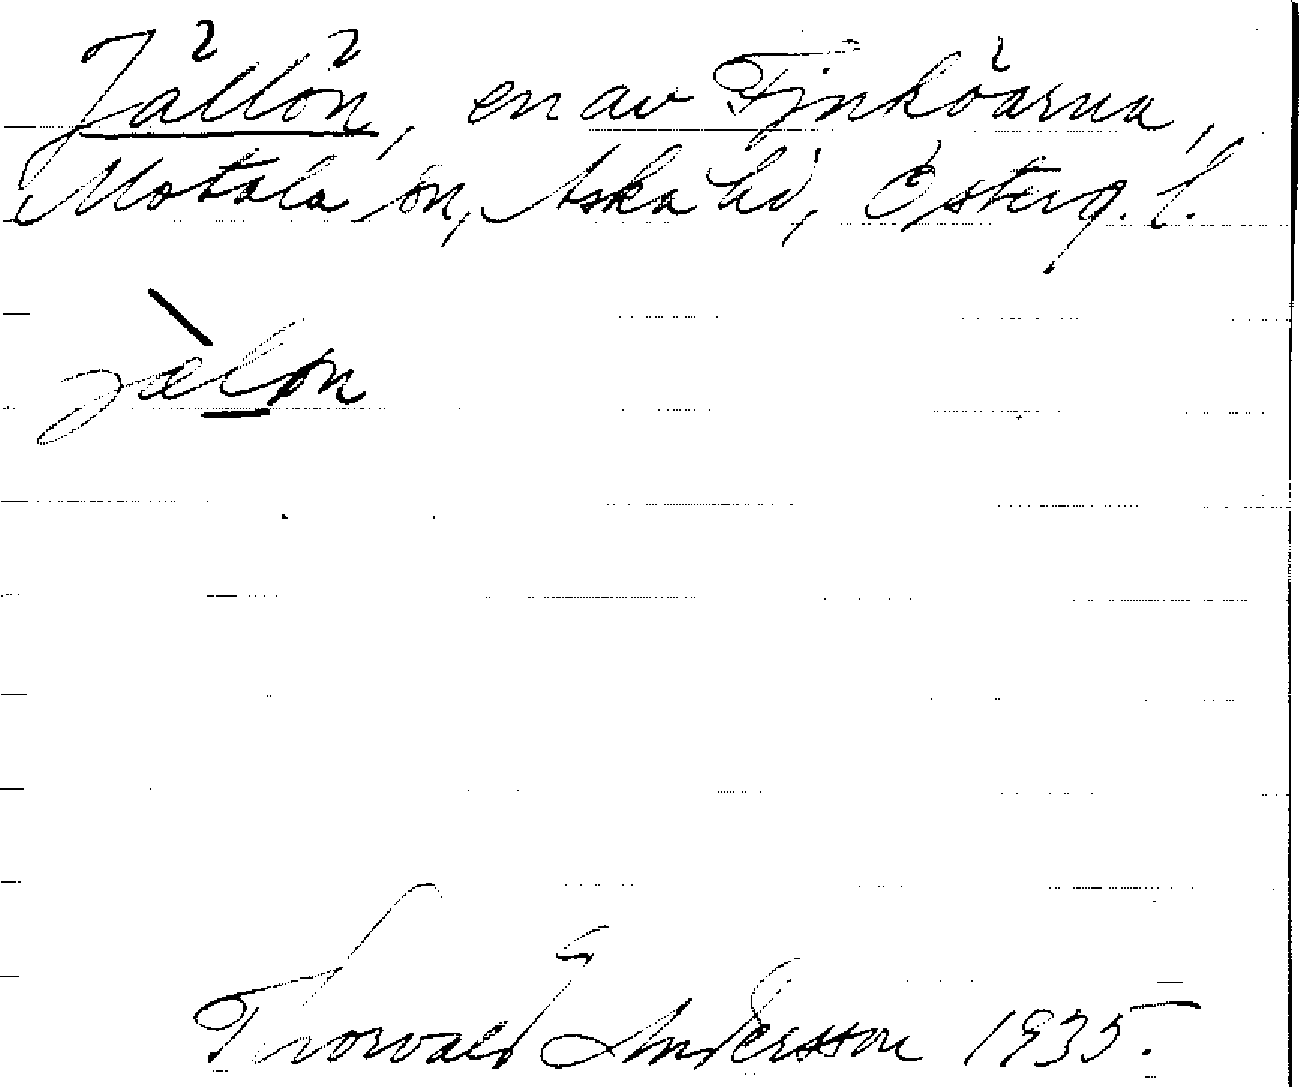 Jällön, en av Fjuköarna,
Motala sn, Aska hd, Österg. l.
jælön
Thorvald E Andersson 1935.